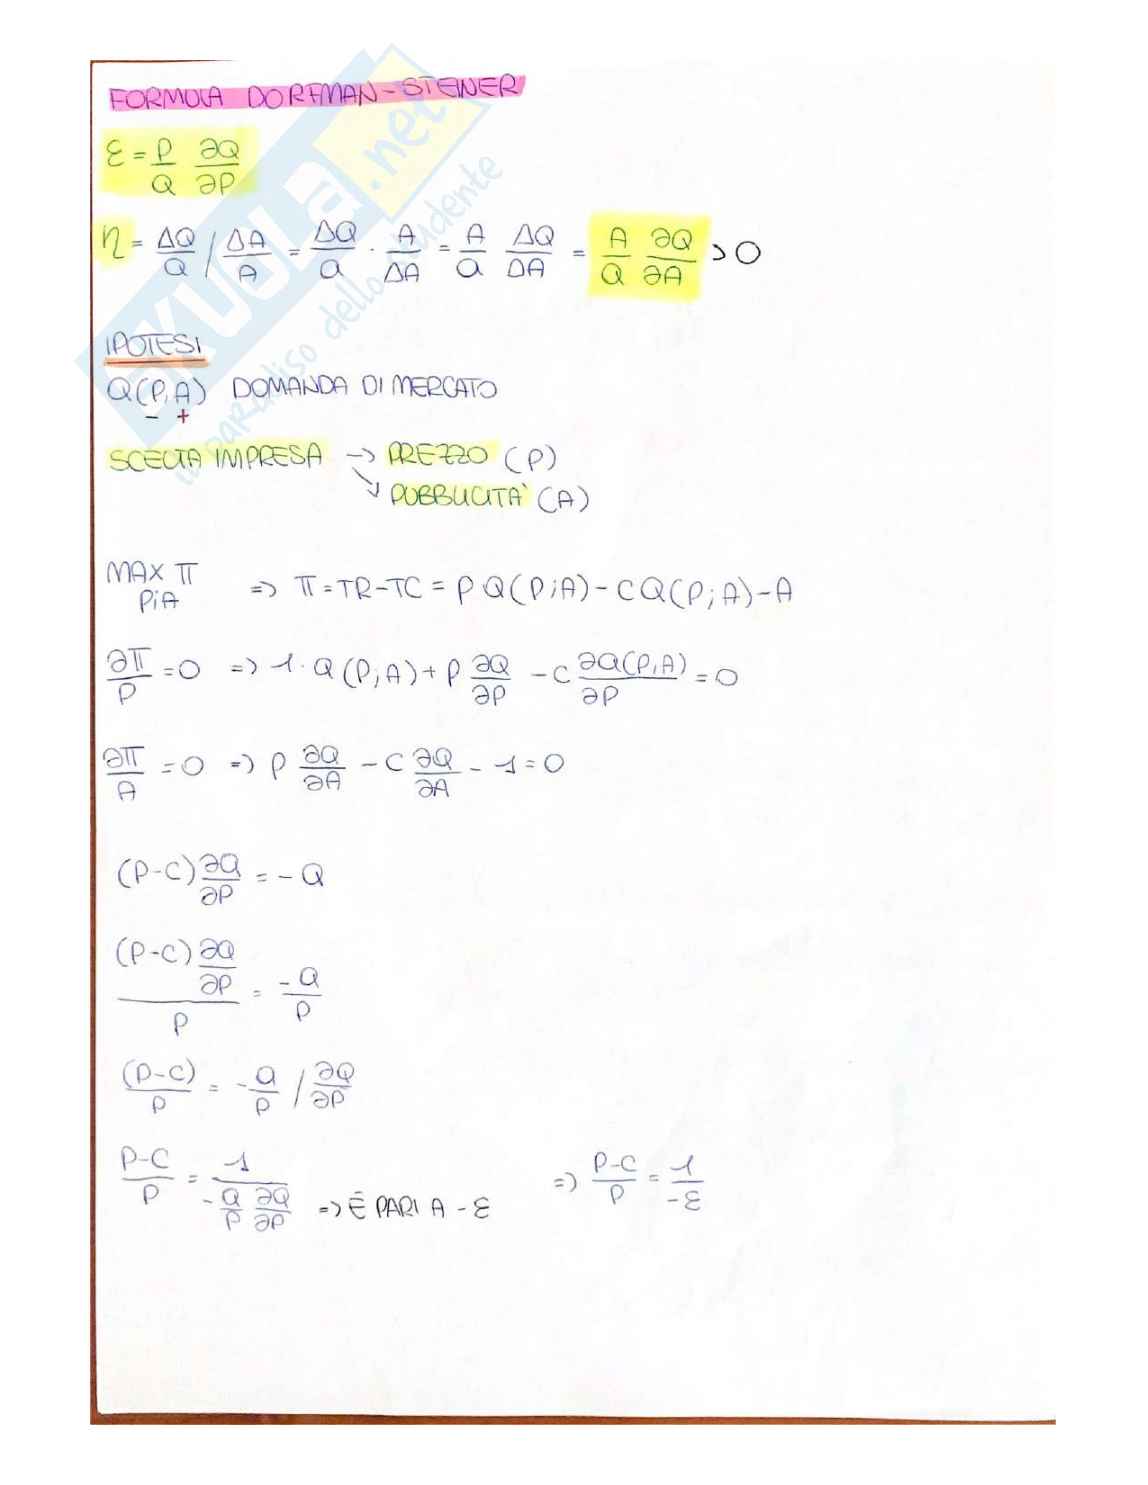 FORMULA DORFMAN-STEINER
ε = P/Q ∂Q/∂P
η = ΔQ/Q / ΔA/A = ΔQ/Q · A/ΔA = A/Q ΔQ/ΔA = A/Q ∂Q/∂A > 0
IPOTESI
Q(P,A) DOMANDA DI MERCATO
- +
SCELTA IMPRESA → PREZZO (P)
↘ PUBBLICITA' (A)
MAX π => π = TR-TC = P Q(P;A) - CQ(P;A) - A
P;A
∂π/P = 0 => 1· Q(P;A) + P ∂Q/∂P - C ∂Q(P,A)/∂P = 0
∂π/A = 0 => P ∂Q/∂A - C ∂Q/∂A - 1 = 0
(P-C) ∂Q/∂P = - Q
(P-C) ∂Q/∂P / P = -Q/P
(P-C)/P = -Q/P / ∂Q/∂P
P-C/P = 1 / -Q/P ∂Q/∂P => È PARI A - ε => P-C/P = 1/-ε
SKUOLA.net
il paradiso dello studente